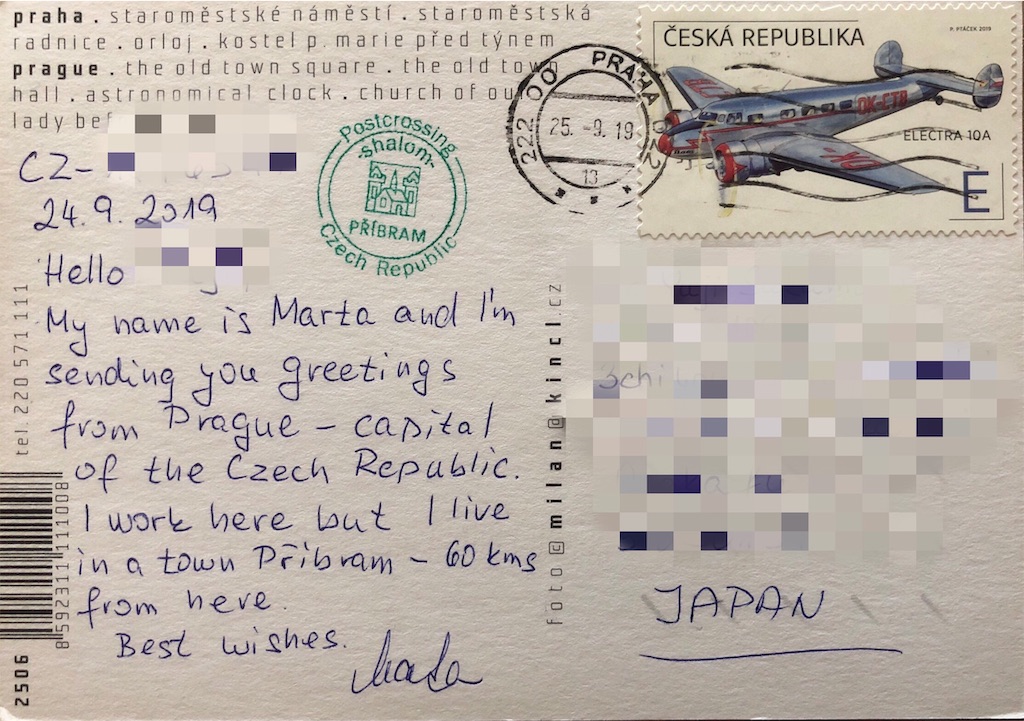 praha . staroměstské náměstí . staroměstská
radnice . orloj . kostel p. marie před týnem
prague . the old town square . the old town
hall . astronomical clock . church of our
lady bef
CZ-
24.9. 2019
Hello
My name is Marta and I'm
sending you greetings
from Prague – capital
of the Czech Republic.
I work here but I live
in a town Příbram – 60 kms
from here.
Best wishes.
Marta
Postcrossing
-shalom-
PŘÍBRAM
Czech Republic
PRAHA 022
222 00
25. -9. 19
13
ČESKÁ REPUBLIKA
P. PTÁČEK 2019
OK-CTB
ELECTRA 10A
E
JAPAN
tel. 220 571 111
8592311111008
2506
foto © milan @ kincl.cz